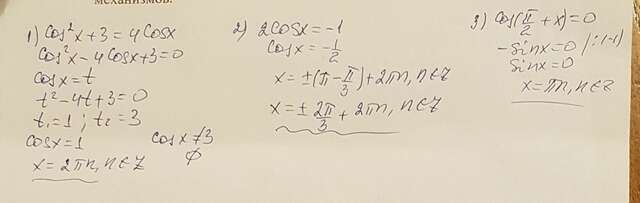 механизмов.
1) cos²x+3=4cosx
cos²x-4cosx+3=0
cosx=t
t²-4t+3=0
t₁=1; t₂=3
cosx=1 cosx≠3
x=2πn, n∈Z ∅
2) 2cosx=-1
cosx=-1/2
x=±(π-π/3)+2πn, n∈Z
x=±2π/3+2πn, n∈Z
3) cos(π/2+x)=0
-sinx=0 /:(-1)
sinx=0
x=πn, n∈Z